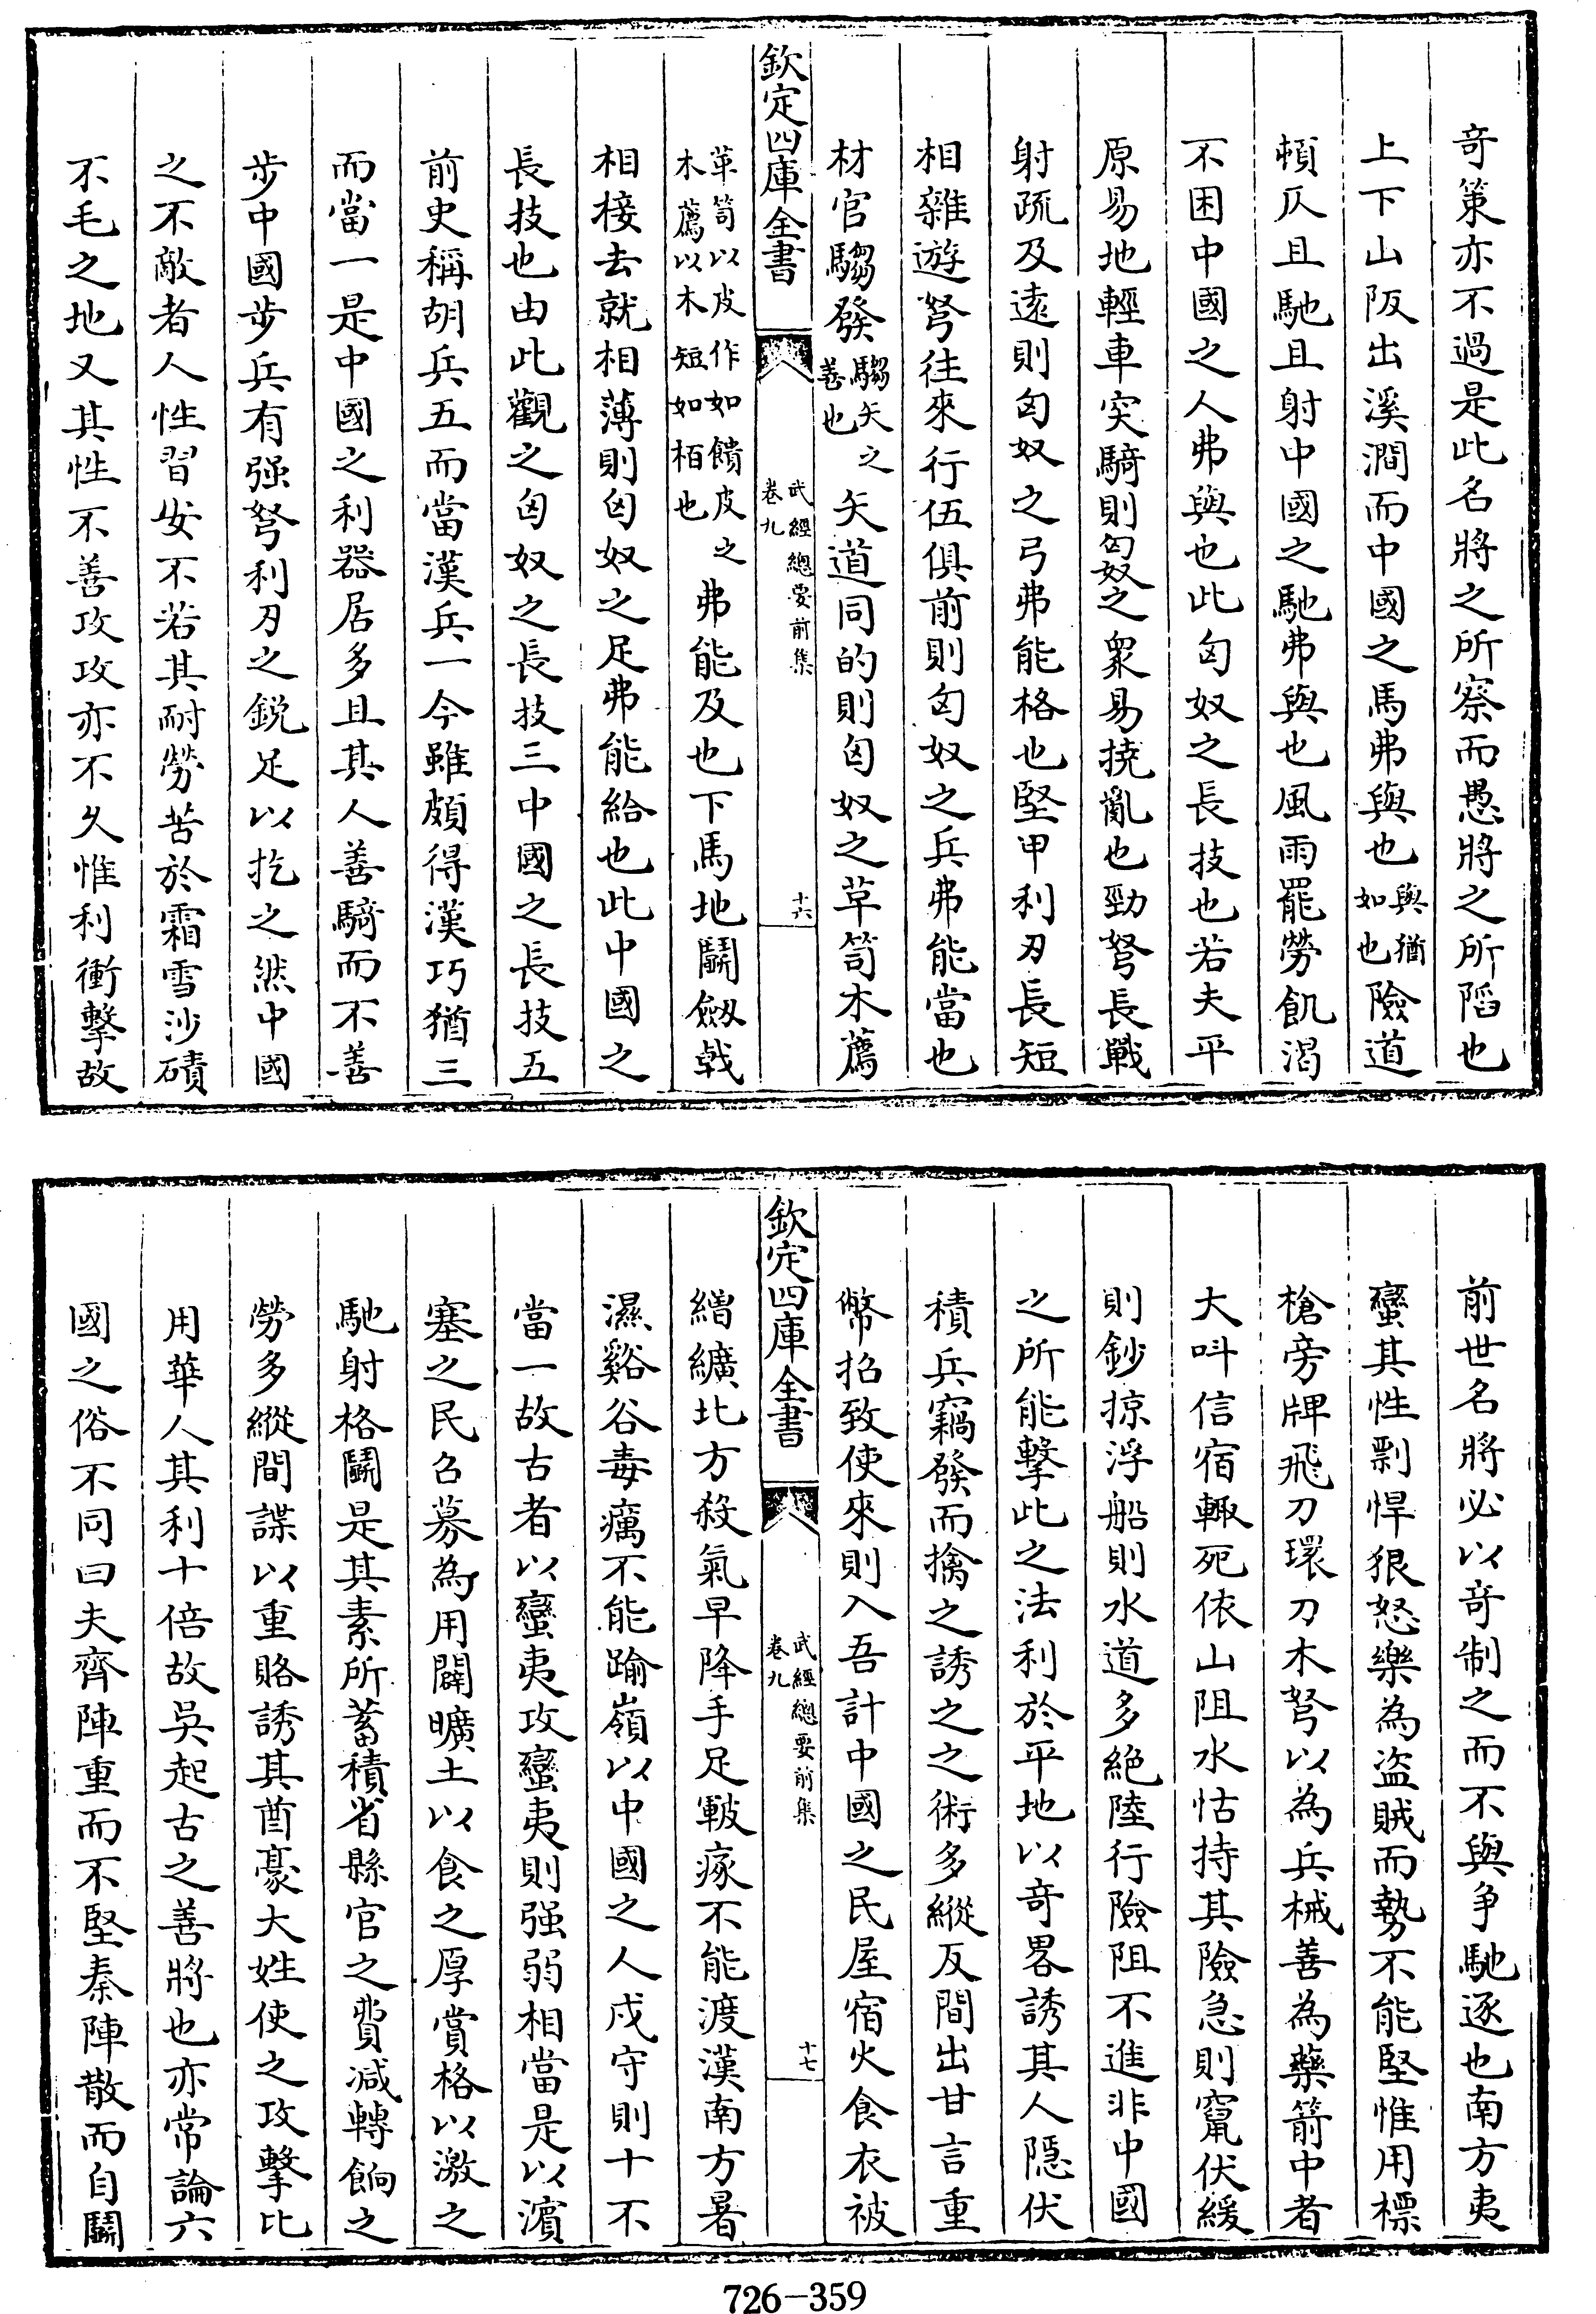 竒策亦不過是此名將之所察而愚將之所陷也
上下山阪出溪澗而中國之馬弗與也與猶如也險道
傾仄且馳且射中國之馳弗與也風雨罷勞飢渴
不困中國之人弗與也此匈奴之長技也若夫平
原易地輕車突騎則匈奴之衆易撓亂也勁弩長戟
射疏及逺則匈奴之弓弗能格也堅甲利刃長短
相雜遊弩往來行伍俱前則匈奴之兵弗能當也
材官騶發騶矢之善也矢道同的則匈奴之草笥木薦
欽定四庫全書
武經總要前集
卷九
十六
革笥以皮作如饋皮之木薦以木短如栢也弗能及也下馬地鬭劔戟
相接去就相薄則匈奴之足弗能給也此中國之
長技也由此觀之匈奴之長技三中國之長技五
前史稱胡兵五而當漢兵一今雖頗得漢巧猶三
而當一是中國之利器居多且其人善騎而不善
步中國步兵有强弩利刃之鋭足以扢之然中國
之不敵者人性習安不若其耐勞苦於霜雪沙磧
不毛之地又其性不善攻攻亦不久惟利衝擊故
前世名將必以竒制之而不與争馳逐也南方夷
蠻其性剽悍狠怒樂為盜賊而勢不能堅惟用標
槍旁牌飛刀環刀木弩以為兵械善為藥箭中者
大叫信宿輙死依山阻水怙持其險急則竄伏緩
則鈔掠浮船則水道多絶陸行險阻不進非中國
之所能擊此之法利於平地以竒畧誘其人隱伏
積兵竊發而擒之誘之之術多縱反間出甘言重
幣招致使來則入吾計中國之民屋宿火食衣被
欽定四庫全書
武經總要前集
卷九
十七
繒纊北方殺氣早降手足皸瘃不能渡漢南方暑
濕谿谷毒癘不能踰嶺以中國之人戍守則十不
當一故古者以蠻夷攻蠻夷則强弱相當是以濵
塞之民召募為用闢曠土以食之厚賞格以激之
馳射格鬭是其素所蓄積省縣官之費減轉餉之
勞多縱間諜以重賂誘其酋豪大姓使之攻擊比
用華人其利十倍故吳起古之善將也亦常論六
國之俗不同曰夫齊陣重而不堅秦陣散而自鬭
726-359